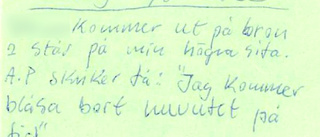 Kommer ut på torgn
2 stås på min högra sita.
A.P skriker tá: "Jag Kommer
blåsa bort huvutet på
tig"